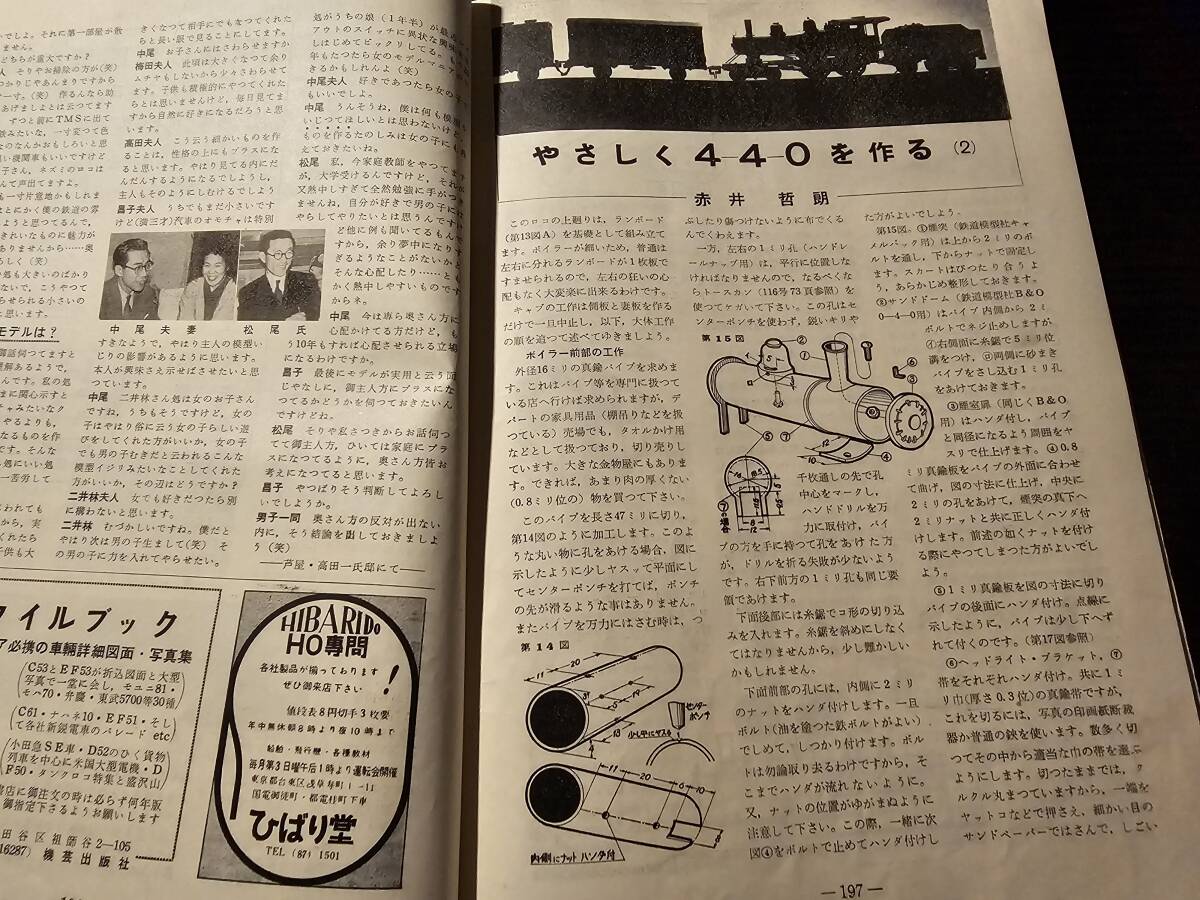 きくなつて相手にでもなつてくれた
らと長い眼で見ることにしてます。
中尾　お子さんにはさわらせますか
梅田夫人　此頃は大きくなつて余り
ムチャもしないから少々さわらせて
ます。子供も積極的にやつてくれた
らとは思いませんけど、毎日見てま
すから自然に好きになるだろうと思
います。
高田夫人　こう云う細かいものを作
ることは、性格の上にもプラスにな
ると思います。やはり見てる内にだ
んだんするようになるでしようし、
主人もそのようにしむけるでしよう
昌子夫人　うちでもまだ小さいです
けど(満三才)汽車のオモチャは特別
中尾夫妻　松尾氏
すきなようで、やはり主人の模型い
じりの影響があるように思います。
本人が興味さえ示せばさせたいと思
つています。
中尾　二井林さん処は女のお子さん
ですね、うちもそうですけど、女の
子はやはり俗に云う女の子らしい遊
びをしてくれた方がいいか、女の子
でも男の子むきだと云われるこんな
模型イジリみたいなことしてくれた
方がいいか、その辺はどうですか？
二井林夫人　女でも好きだつたら別
に構わないと思います。
二井林　むづかしいですね。僕だと
やはり次は男の子生まして(笑)　そ
の男の子に力を入れてやらせたい。
処がうちの娘(1年半)が最近
アウトのスイッチに異状な興味
しはじめてビックリしてる。
年もたつたら女のモデルマニア
きるかもしれんよ(笑)
中尾夫人　好きであつたら女の子
もいいでしよ。
中尾　うんそうね、僕は何も模型
いじつてほしいとは思わないけど
ものを作るたのしみは女の子にも
えておきたいね。
松尾　私、今家庭教師をやつてます
が、大学受けるんですけど、それが
又熱中しすぎて全然勉強に手がつき
ませんね、自分が好きで男の子には
やらしてやりたいとは思うんですけ
ど他に例も聞いてるもんで
すから、余り夢中になりす
ぎるようなことがないかと
そんな心配したり……とも
かく熱中しやすいものです
からネ。
中尾　今は専ら奥さん方に
心配かけてる方だけど、も
う10年もすれば心配させられる立場
になるわけですか。
昌子　最後にモデルが実用と云う面
じやなしに、御主人方にプラスにな
つてるかどうかを伺つておきたいん
ですけどね。
松尾　そりや私さつきからお話伺つ
てて御主人方、ひいては家庭にプラ
スになつてるように、奥さん方皆お
考えになつてると思います。
昌子　やつぱりそう判断してよろし
いでしようか。
男子一同　奥さん方の反対が出ない
内に、そう結論を出しておきましよ
う(笑)
――芦屋・高田一氏邸にて――
モデルは？
イルブック
ア必携の車輛詳細図面・写真集
C53とEF53が折込図面と大型
写真で一堂に会し、モユニ81・
モハ70・弁慶・東武5700等30種
C61・ナハネ10・EF51・そし
て各社新鋭電車のパレード etc
小田急SE車・D52のひく貨物
列車を中心に米国大型電機・D
F50・タンクロコ特集と盛沢山
書店に御注文の時は必らず何年版
御指定下さるようお願いします
田谷区祖師谷2―105
16287) 機芸出版社
HIBARIDo
HO専門
各社製品が揃っております
ぜひ御来店下さい！
値段表8円切手3枚要
年中無休朝8時より夜10時まで
船舶・飛行機・各種教材
毎月第3日曜午后1時より運転会開催
東京都台東区浅草寿町1―11
国電御徒町・都電桂町下車
ひばり堂
TEL (87) 1501
やさしく4-4-0を作る (2)
赤井哲朗
このロコの上廻りは、ランボード
(第13図A)を基礎として組み立て
ます。ボイラーが細いため、普通は
左右に分れるランボードが1枚板で
すませられるので、左右の狂いの心
配もなく大変楽に出来るわけです。
キャブの工作は側板と妻板を作る
だけで一旦中止し、以下、大体工作
の順を追つて述べてゆきましよう。
ボイラー前部の工作
外径16ミリの真鍮パイプを求めま
す。これはパイプ等を専門に扱つて
いる店へ行けば求められますが、デ
パートの家具用品(棚吊りなどを扱
つている)売場でも、タオルかけ用
などとして扱つており、切り売りし
ています。大きな金物屋にもありま
す。できれば、あまり肉の厚くない
(0.8ミリ位の)物を買つて下さい。
このパイプを長さ47ミリに切り、
第14図のように加工します。このよ
うな丸い物に孔をあける場合、図に
示したように少しヤスッて平面にし
てセンターポンチを打てば、ポンチ
の先が滑るような事はありません。
またパイプを万力にはさむ時は、つ
第14図
センターポンチ
少し平にヤスる
内側にナットハンダ付
ぶしたり傷つけないように布でくる
んでくわえます。
一方、左右の1ミリ孔(ハンドレ
ールナップ用)は、平行に位置しな
ければなりませんので、なるべくな
らトースカン(116号73頁参照)を
使つてケガいて下さい。この孔はセ
ンターポンチを使わず、鋭いキリや
第15図
⑦の場合
千枚通しの先で孔
中心をマークし、
ハンドドリルを万
力に取付け、パイ
プの方を手に持つて孔をあけた方
が、ドリルを折る失敗が少ないよう
です。右下前方の1ミリ孔も同じ要
領であけます。
下面後部には糸鋸でコ形の切り込
みを入れます。糸鋸を斜めにしなく
てはなりませんから、少し難しいか
もしれません。
下面前部の孔には、内側に2ミリ
のナットをハンダ付けします。一旦
ボルト(油を塗つた鉄ボルトがよい)
でしめて、しつかり付けます。ボル
トは勿論取り去るわけですから、そ
こまでハンダが流れないように。
又、ナットの位置がゆがまぬように
注意して下さい。この際、一緒に次
図④をボルトで止めてハンダ付けし
た方がよいでしよう。
第15図。①煙突(鉄道模型社キャ
メルバック用)は上から2ミリのボ
ルトを通し、下からナットで固定し
ます。スカートはぴつたり合うよ
う、あらかじめ整形しておきます。
②サンドドーム(鉄道模型社B&O
0―4―0用)はパイプ内側から2ミ
ボルトでネジ止めしますが
㋑右側面に糸鋸で5ミリ位
溝をつけ、㋺両側に砂まき
パイプをさし込む1ミリ孔
をあけておきます。
③煙室扉(同じくB&O
用)はハンダ付し、パイプ
と同径になるよう周囲をヤ
スリで仕上げます。④0.8
ミリ真鍮板をパイプの外面に合わせ
て曲げ、図の寸法に仕上げ、中央に
2ミリの孔をあけて、煙突の真下へ
2ミリナットと共に正しくハンダ付
けします。前述の如くナットを付け
る際にやつてしまつた方がよいでし
よう。
⑤1ミリ真鍮板を図の寸法に切り
パイプの後面にハンダ付け。点線に
示したように、パイプは少し下へず
れて付くのです。(第17図参照)
⑥ヘッドライト・ブラケット、⑦
帯をそれぞれハンダ付け。共に1ミ
リ巾(厚さ0.3位)の真鍮帯ですが、
これを切るには、写真の印画紙断裁
器か普通の鋏を使います。数多く切
つてその中から適当な巾の帯を選ぶ
ようにします。切つたままでは、ク
ルクル丸まつていますから、一端を
ヤットコなどで押さえ、細かい目の
サンドペーパーではさんで、しごい
―197―